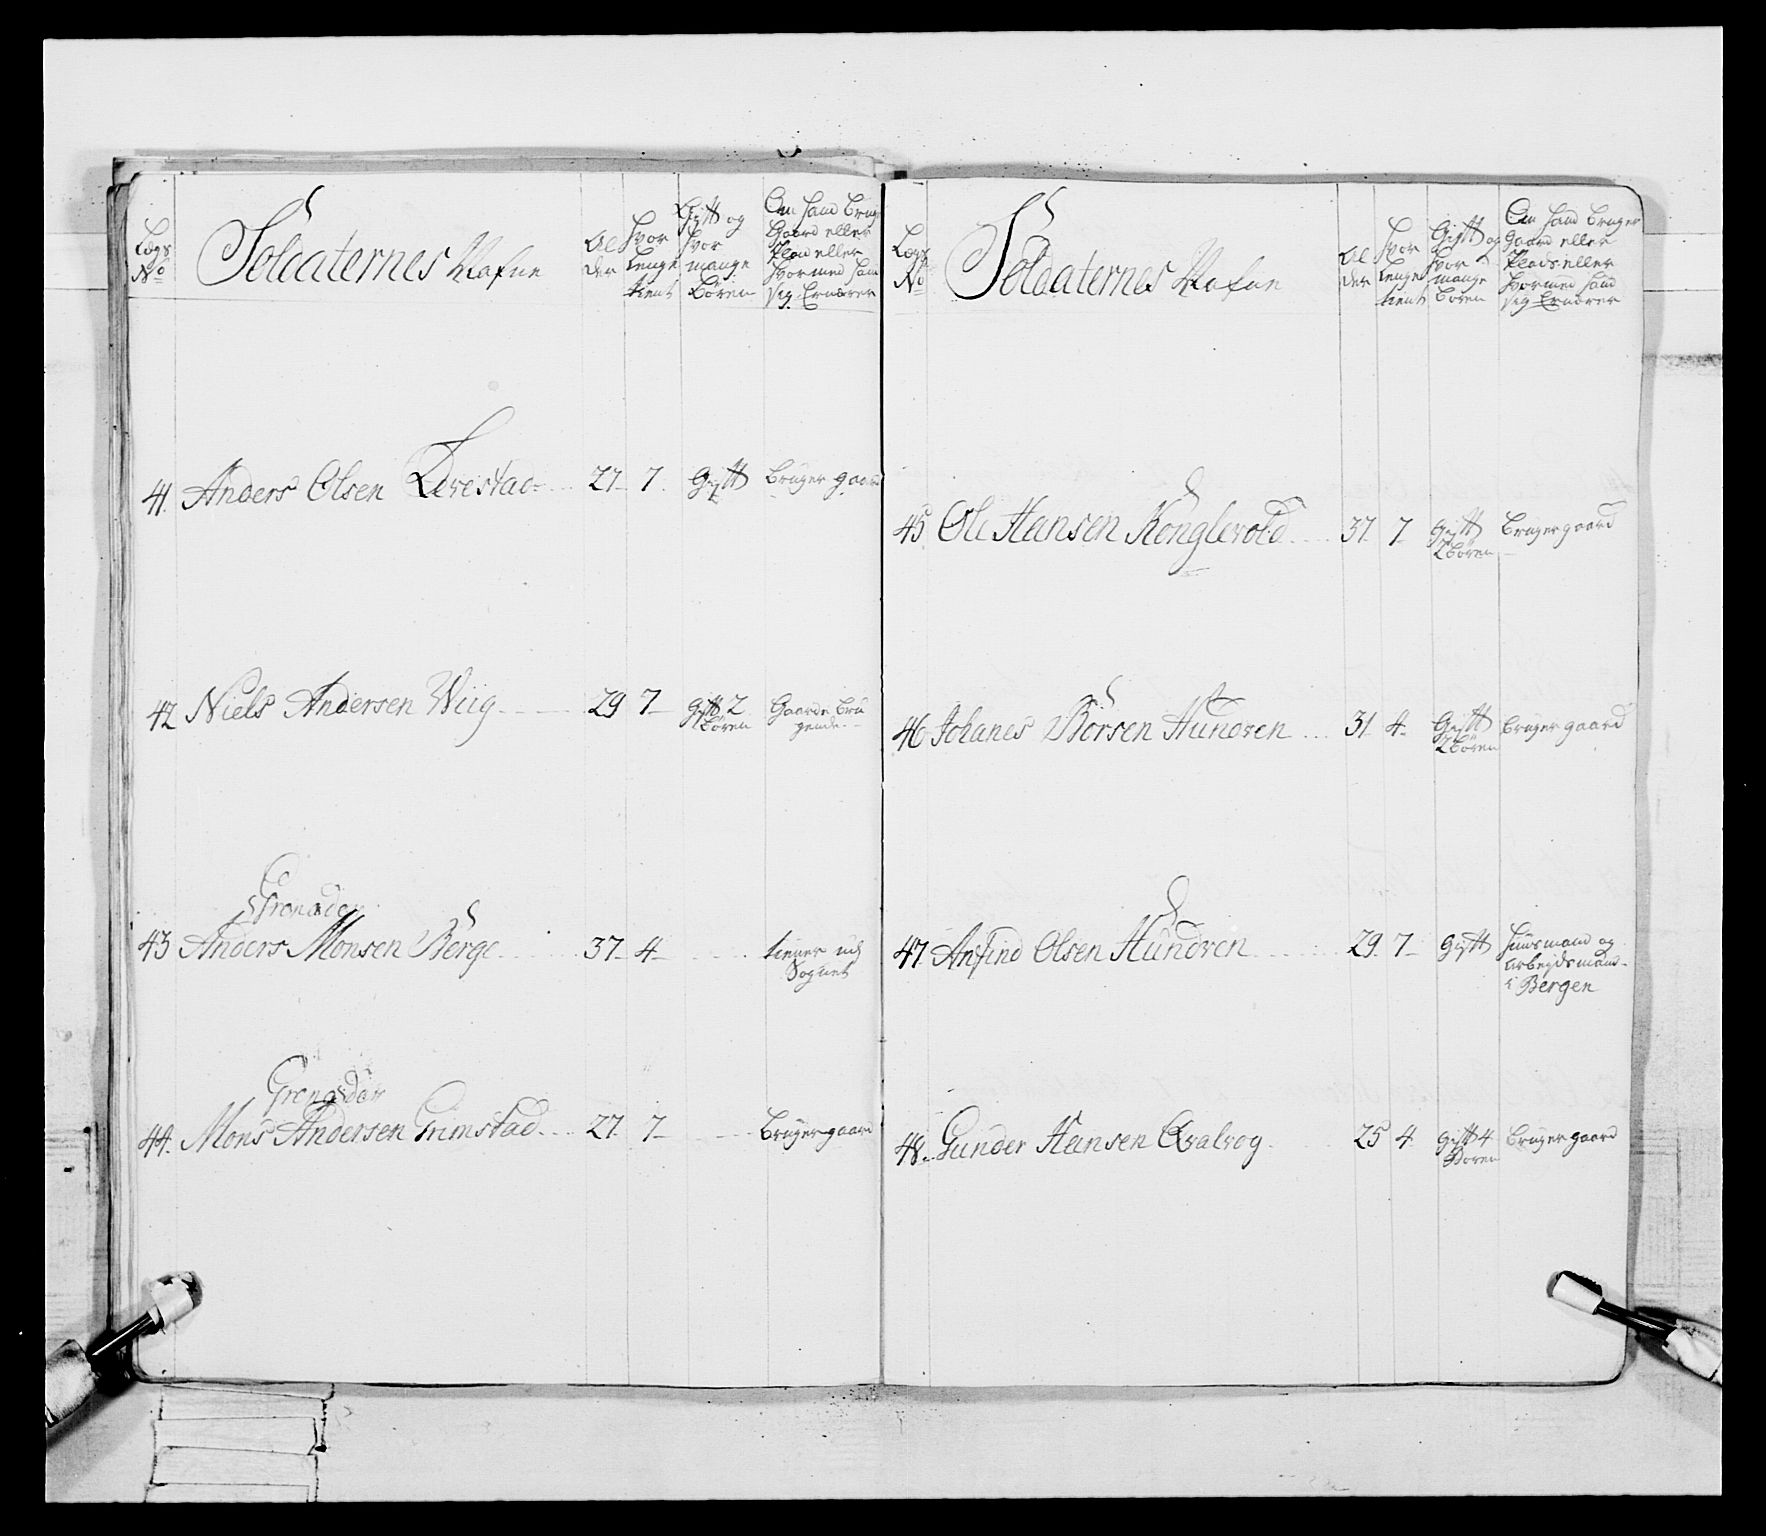 Lægs No
Soldaternes Nafne
Al der
hvor lenge tient
Gift og hvor mange Børen
Om hand bruger Gaard eller Plads eller hvormed hand sig Ernærer
41. Anders Olsen 27 7 Gift bruger gaard
42 Niels Andersen Wiig 29 7 gift 2 børen Gaarde bru gende
Grenadør
43 Anders Monsen Berge 37 4 tiener udj Sognet
Grenadør
44. Mons Andersen Grimstad 27 7 bruger gaard
Lægs No
Soldaternes Nafne
Al der
hvor lenge tient
Gift og hvor mange børen
Om hand bruger Gaard eller Plads eller hvormed hand sig Ernærer
45 Ole Hansen Konglevold 37 7 gift 2 børen bruger gaard
46 Johanes Børsen Hundven 31 4 Gift 2 børen bruger gaard
47 Anfind Olsen Hundven 29 7 gift huusmand og arbejdsmand i Bergen
48. Gunder Hansen Qvalvog 25 4 gift 4 Børen bruger gaard